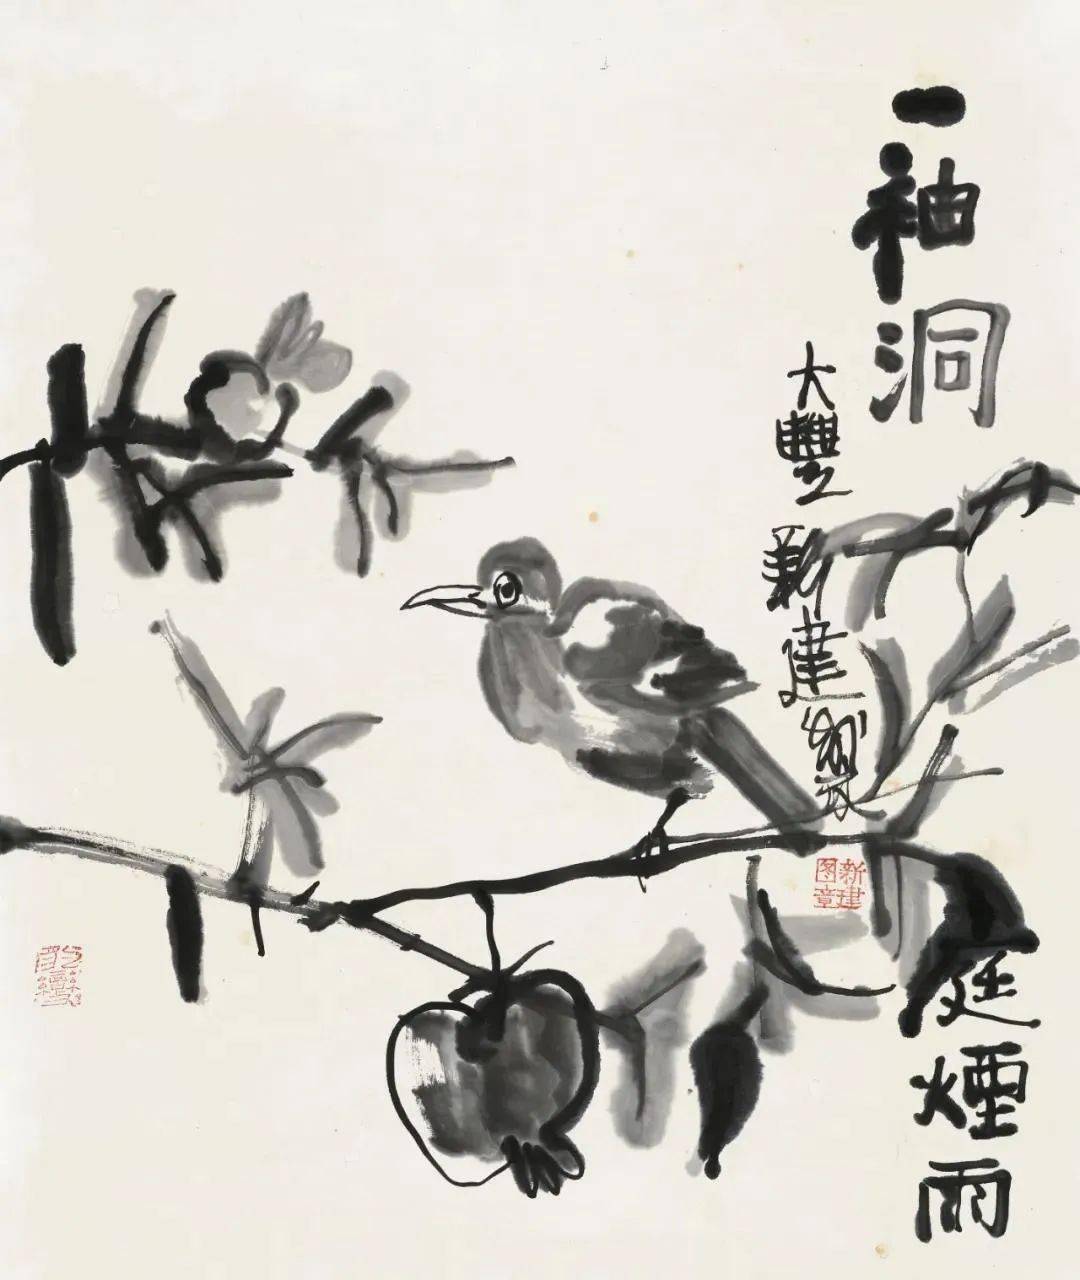 一袖洞庭煙雨
大豐新建製
新建
图章